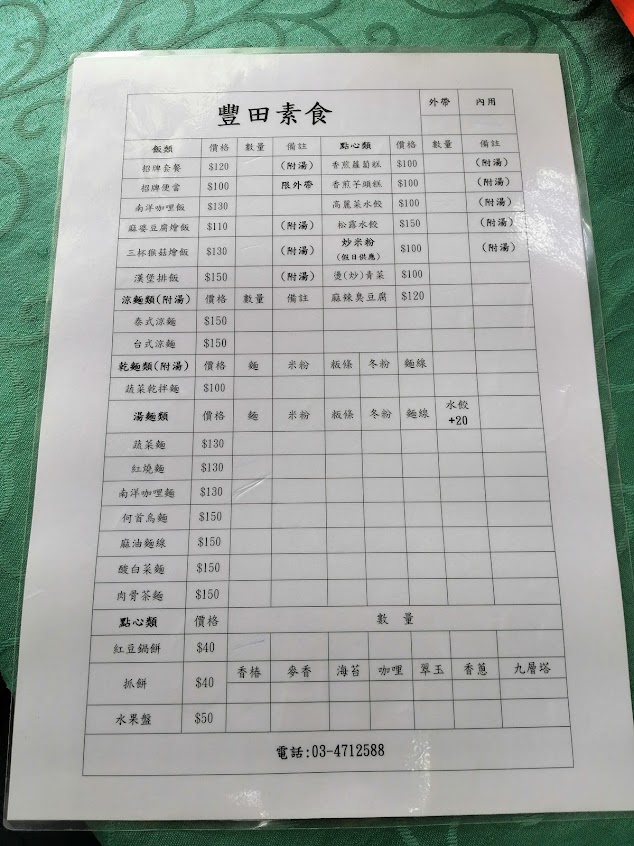 豐田素食 外帶 內用
飯類 價格 數量 備註 點心類 價格 數量 備註
招牌套餐 $120 (附湯) 香煎蘿蔔糕 $100 (附湯)
招牌便當 $100 限外帶 香煎芋頭糕 $100 (附湯)
南洋咖哩飯 $130 高麗菜水餃 $100 (附湯)
麻婆豆腐燴飯 $110 (附湯) 松露水餃 $150 (附湯)
三杯猴菇燴飯 $130 (附湯) 炒米粉 $100 (附湯)
(假日供應)
漢堡排飯 $150 (附湯) 燙(炒)青菜 $100
涼麵類(附湯) 價格 數量 備註 麻辣臭豆腐 $120
泰式涼麵 $150
台式涼麵 $150
乾麵類(附湯) 價格 麵 米粉 粄條 冬粉 麵線
蔬菜乾拌麵 $100
湯麵類 價格 麵 米粉 粄條 冬粉 麵線 水餃
+20
蔬菜麵 $130
紅燒麵 $130
南洋咖哩麵 $130
何首烏麵 $150
麻油麵線 $150
酸白菜麵 $150
肉骨茶麵 $150
點心類 價格 數 量
紅豆鍋餅 $40
香椿 麥香 海苔 咖哩 翠玉 香蔥 九層塔
抓餅 $40
水果盤 $50
電話:03-4712588